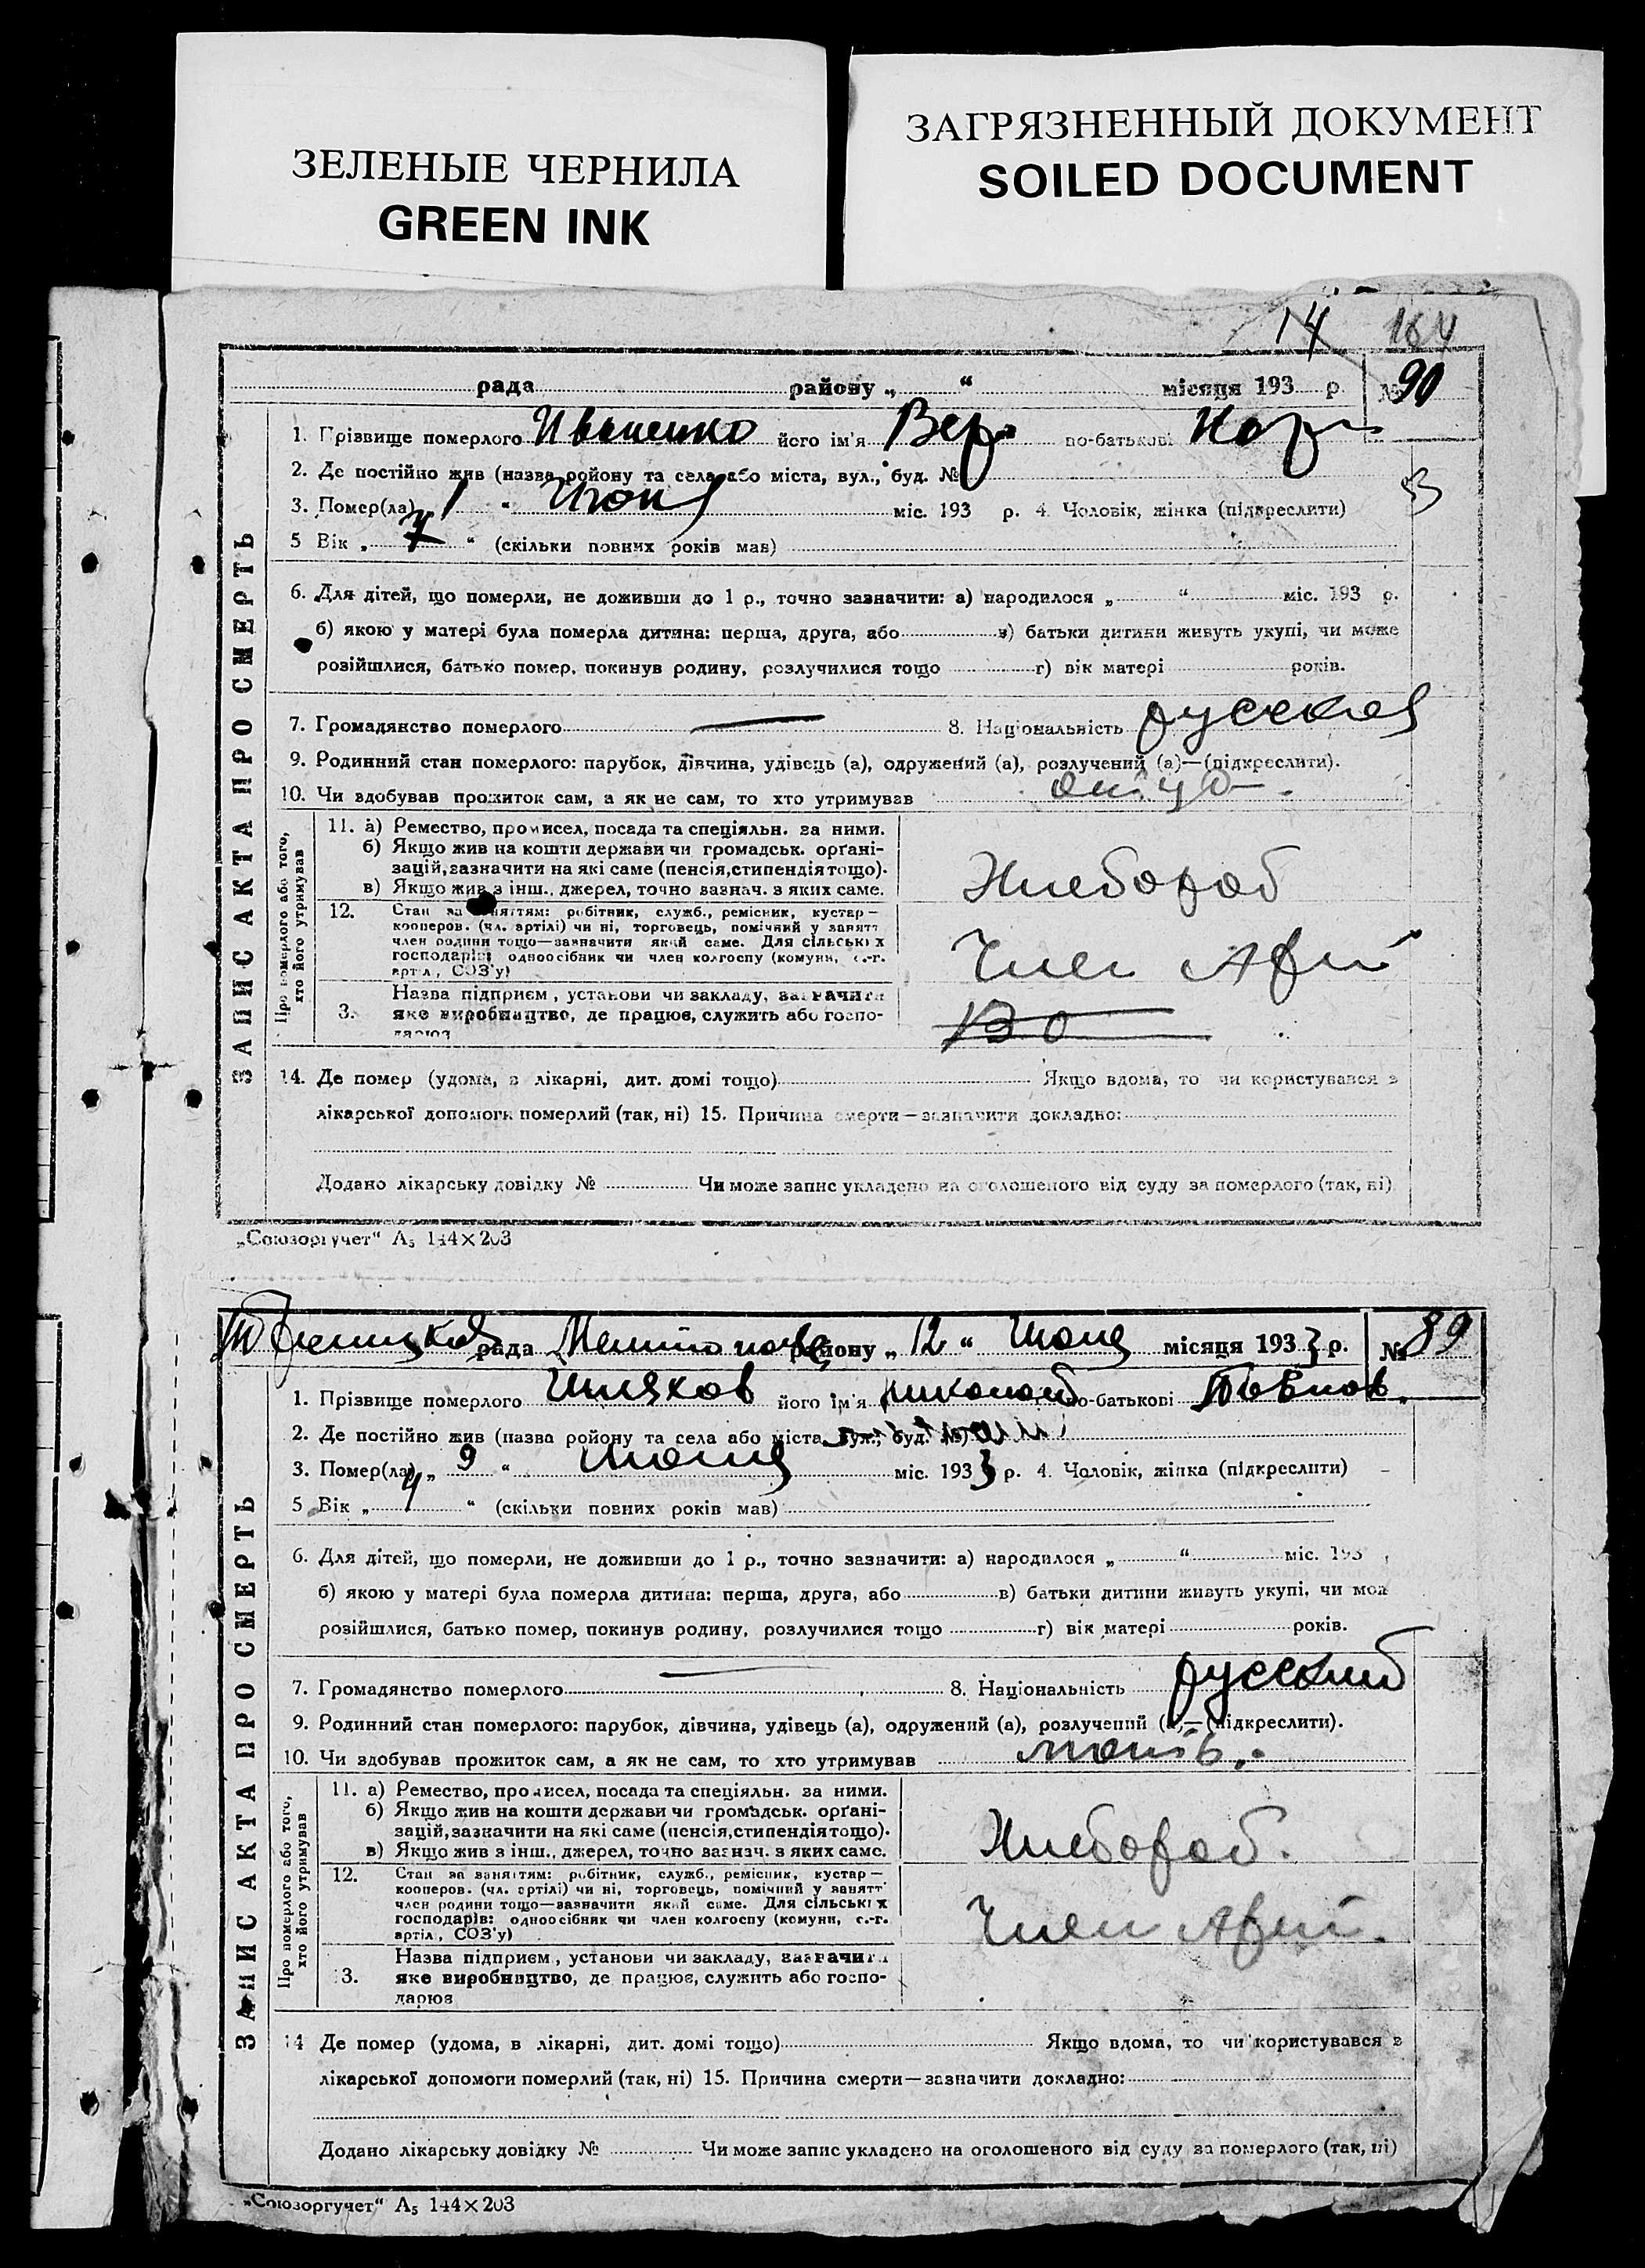 ЗЕЛЕНЫЕ ЧЕРНИЛА
GREEN INK
ЗАГРЯЗНЕННЫЙ ДОКУМЕНТ
SOILED DOCUMENT
14 164
рада району „ “ місяця 193 р. № 90
1. Прізвище померлого Иваненко його ім'я Вера по-батькові
2. Де постійно жив (назва ройону та села або міста, вул., буд. №
3. Помер(ла) „ 1 “ Июня міс. 193 р. 4. Чоловік, жінка (підкреслити)
5 Вік „ 7 “ (скільки повних років мав)
6. Для дітей, що померли, не доживши до 1 р., точно зазначити: а) народилося „ “ міс. 193 р.
б) якою у матері була померла дитина: перша, друга, або в) батьки дитини живуть укупі, чи може
розійшлися, батько помер, покинув родину, розлучилися тощо г) вік матері років.
7. Громадянство померлого — 8. Національність русская
9. Родинний стан померлого: парубок, дівчина, удівець (а), одружений (а), розлучений (а)—(підкреслити).
10. Чи здобував прожиток сам, а як не сам, то хто утримував
ЗАПИС АКТА ПРО СМЕРТЬ
Про померлого або того,
хто його утримував
11. а) Ремество, промисел, посада та спеціяльн. за ними.
б) Якщо жив на кошти держави чи громадськ. орґані-
зацій, зазначити на які саме (пенсія, стипендія тощо).
в) Якщо жив з інш., джерел, точно зазнач. з яких саме.
Хлебороб
12. Стан за заняттям: робітник, служб., ремісник, кустар—
кооперов. (чл. артілі) чи ні, торговець, помічний у занятт
член родини тощо—зазначити який саме. Для сільськіх
господарів: одноосібник чи член колгоспу (комуни, с.-г.
артіл, СОЗ'у)
Член Арти
3. Назва підприєм, установи чи закладу, зазначити
яке виробництво, де працює, служить або госпо-
дарює
14. Де помер (удома, в лікарні, дит. домі тощо) Якщо вдома, то чи користувався з
лікарської допомоги померлий (так, ні) 15. Причина смерти—зазначити докладно:
Додано лікарську довідку № Чи може запис укладено на оголошеного від суду за померлого (так, ні)
„Союзоргучет“ А5 144×203
рада району „ 12 “ Июня місяця 1933 р. № 89
1. Прізвище померлого Шляхов його ім'я Николай по-батькові
2. Де постійно жив (назва ройону та села або міста, вул., буд. №)
3. Помер(ла) „ 9 “ Июня міс. 1933 р. 4. Чоловік, жінка (підкреслити)
5 Вік „ 4 “ (скільки повних років мав)
6. Для дітей, що померли, не доживши до 1 р., точно зазначити: а) народилося „ “ міс. 193
б) якою у матері була померла дитина: перша, друга, або в) батьки дитини живуть укупі, чи мож
розійшлися, батько помер, покинув родину, розлучилися тощо г) вік матері років.
7. Громадянство померлого — 8. Національність русский
9. Родинний стан померлого: парубок, дівчина, удівець (а), одружений (а), розлучений (а)—(підкреслити).
10. Чи здобував прожиток сам, а як не сам, то хто утримував мать
ЗАПИС АКТА ПРО СМЕРТЬ
Про померлого або того,
хто його утримував
11. а) Ремество, промисел, посада та спеціяльн. за ними.
б) Якщо жив на кошти держави чи громадськ. орґані-
зацій, зазначити на які саме (пенсія, стипендія тощо).
в) Якщо жив з інш., джерел, точно зазнач. з яких саме.
Хлебороб.
12. Стан за заняттям: робітник, служб., ремісник, кустар—
кооперов. (чл. артілі) чи ні, торговець, помічний у занятт
член родини тощо—зазначити який саме. Для сільськіх
господарів: одноосібник чи член колгоспу (комуни, с.-г.
артіл, СОЗ'у)
Член Арти.
3. Назва підприєм, установи чи закладу, зазначити
яке виробництво, де працює, служить або госпо-
дарює
14 Де помер (удома, в лікарні, дит. домі тощо) Якщо вдома, то чи користувався з
лікарської допомоги померлий (так, ні) 15. Причина смерти—зазначити докладно:
Додано лікарську довідку № Чи може запис укладено на оголошеного від суду за померлого (так, ні)
„Союзоргучет“ А5 144×203